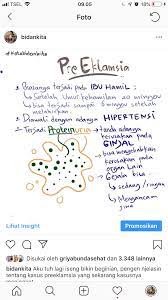 TSEL
09.05
Foto
bidankita
Pre Eklamsia
Biasanya terjadi pada IBU HAMIL
Setelah Umur kehamilan 20 minggu
bisa terjadi sampai 6 minggu setelah
melahirkan
Diawali dengan adanya HIPERTENSI
Terjadi Proteinuria
tanda adanya
kerusakan pada
GINJAL
bisa mengakibatkan
kerusakan pada
organ lain
Gejala bisa
sedang/ringan
Mengancam
jiwa
Lihat Insight
Promosikan
Disukai oleh griyabundasehat dan 3.348 lainnya
bidankita Aku tuh lagi iseng bikin beginian, pengen njelasin
tentang kasus preeklamsia yang sekarang kasusnya